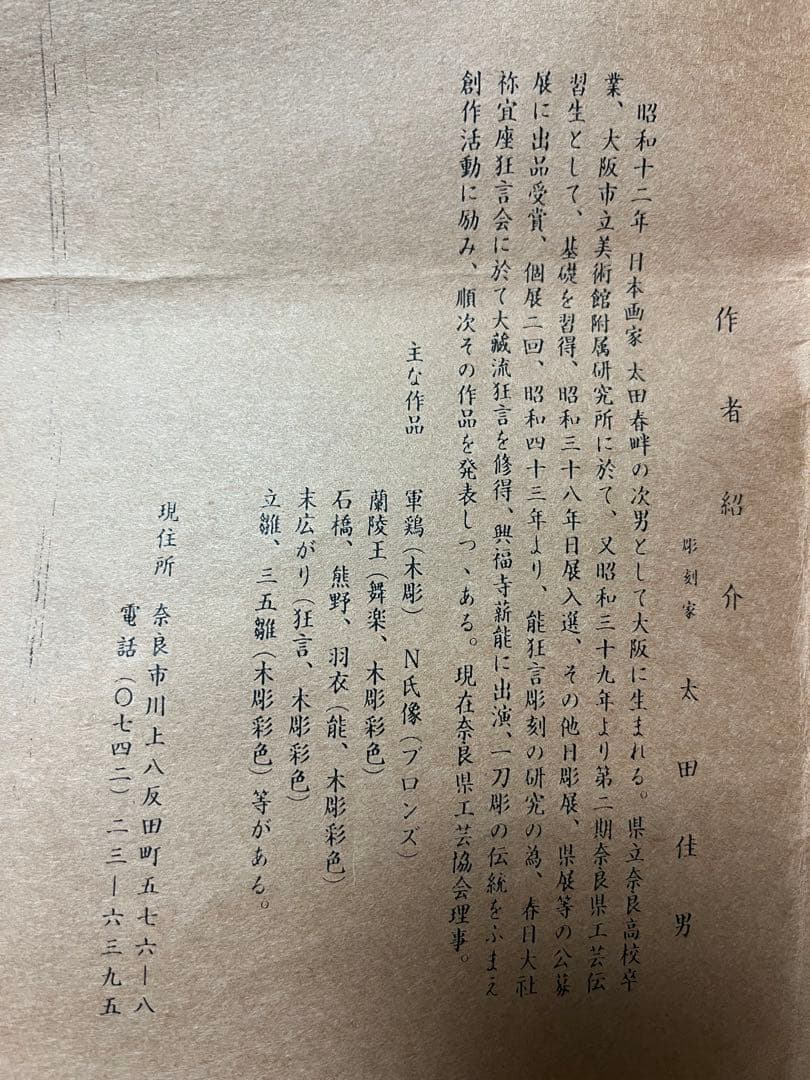 作者紹介
彫刻家 太田佳男
昭和十二年 日本画家 太田春畔の次男として大阪に生まれる。県立奈良高校卒
業、大阪市立美術館附属研究所に於て、又昭和三十九年より第二期奈良県工芸伝
習生として、基礎を習得、昭和三十八年日展入選、その他日彫展、県展等の公募
展に出品受賞、個展二回、昭和四十三年より、能狂言彫刻の研究の為、春日大社
祢宜座狂言会に於て大藏流狂言を修得、興福寺薪能に出演、一刀彫の伝統をふまえ
創作活動に励み、順次その作品を発表しつゝある。現在奈良県工芸協会理事。
主な作品 軍鶏(木彫) N氏像(ブロンズ)
蘭陵王(舞楽、木彫彩色)
石橋、熊野、羽衣(能、木彫彩色)
末広がり(狂言、木彫彩色)
立雛、三五雛(木彫彩色)等がある。
現住所 奈良市川上八反田町五七六ー八
電話(〇七四二)二三ー六三九五